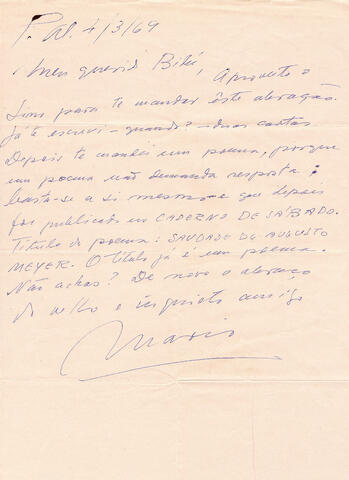 P. Al. 4/3/69
Meu querido Bibi, Aproveito o
Lins para te mandar êste abração.
Já te escrevi – quando? – duas cartas
Depois te mandei um poema, porque
um poema não demanda resposta:
basta-se a si mesmo – e que depois
foi publicado no CADERNO DE SÁBADO.
Título do poema: SAUDADE DE AUGUSTO
MEYER. O título já é um poema.
Não achas? De novo o abraço
do velho e inquieto amigo
Mario